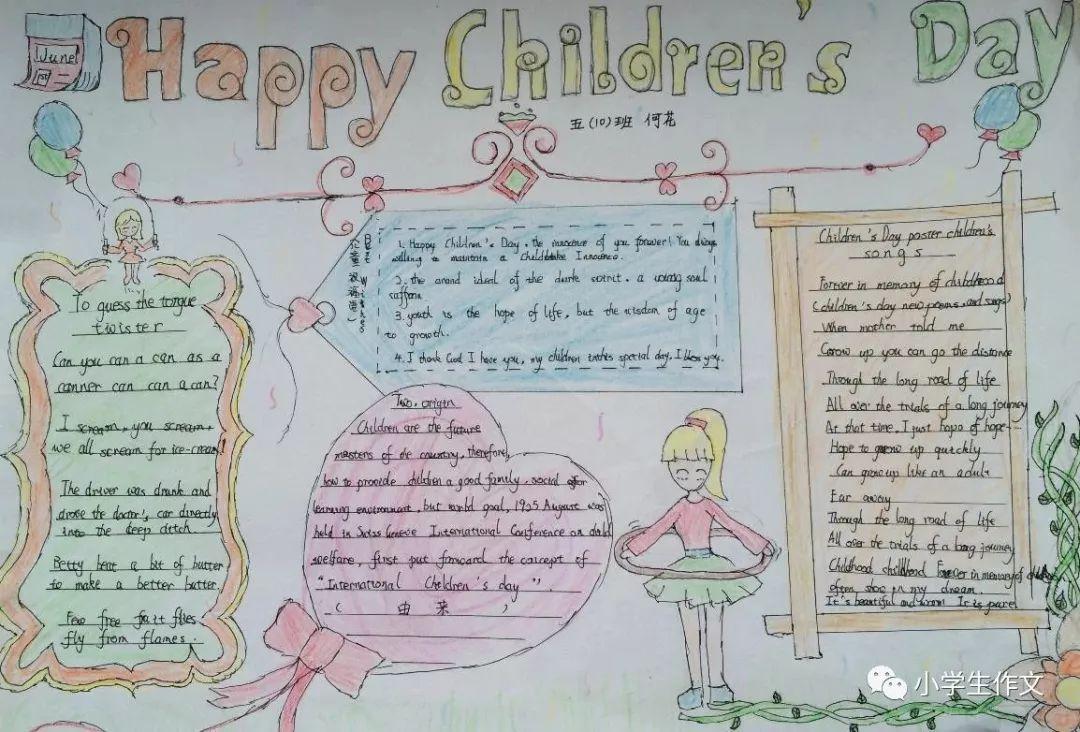 June
1st
Happy Children's Day
五(10)班 何花
To guess the tongue
twister
Can you can a can as a
canner can can a can?
I scream, you scream,
we all scream for ice-cream!
The driver was drunk and
drove the doctor's car directly
into the deep ditch.
Betty beat a bit of butter
to make a better butter.
Few free fruit flies
fly from flames.
Best Wishes
1. Happy Children's Day, the innocence of you forever! You always
willing to maintain a Childlike Innocence.
2. the grand ideal of the dark spirit. a young soul
3. youth is the hope of life, but the wisdom of age
to growth.
4. I thank God I have you, my children in this special day, I bless you.
Two, origin
Children are the future
masters of the country, therefore,
how to provide children a good family, social
learning environment, but world goal, 1925 August was
held in Swiss Geneve International Conference on child
welfare, first put forward the concept of
"International Children's day".
(由来)
Children's Day poster children's
songs
Forever in memory of childhood
(children's day new poems and songs)
When mother told me
Grow up you can go the distance
Through the long road of life
All over the trials of a long journey
At that time, I just hope of hope
Hope to grow up quickly
Can grow up like an adult
Far away
Through the long road of life
All over the trials of a long journey
Childhood Forever in memory of
often in my dream.
It's beautiful and warm It is pure
小学生作文